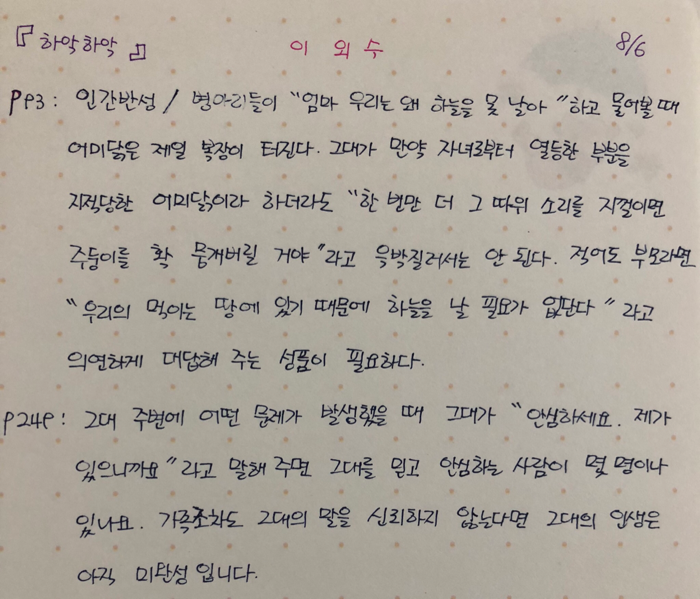 『하악하악』 이외수 8/6
P93: 인간반성 / 병아리들이 "엄마 우리는 왜 하늘을 못 날아" 하고 물어볼 때
어미닭은 제일 복장이 터진다. 그대가 만약 자녀로부터 열등한 부분을
지적당한 어미닭이라 하더라도 "한 번만 더 그 따위 소리를 지껄이면
주둥이를 확 뭉개버릴 거야"라고 윽박질러서는 안 된다. 적어도 부모라면
"우리의 먹이는 땅에 있기 때문에 하늘을 날 필요가 없단다" 라고
의연하게 대답해 주는 성품이 필요하다.
P249: 그대 주변에 어떤 문제가 발생했을 때 그대가 "안심하세요. 제가
있으니까요"라고 말해 주면 그대를 믿고 안심하는 사람이 몇 명이나
있나요. 가족조차도 그대의 말을 신뢰하지 않는다면 그대의 인생은
아직 미완성입니다.